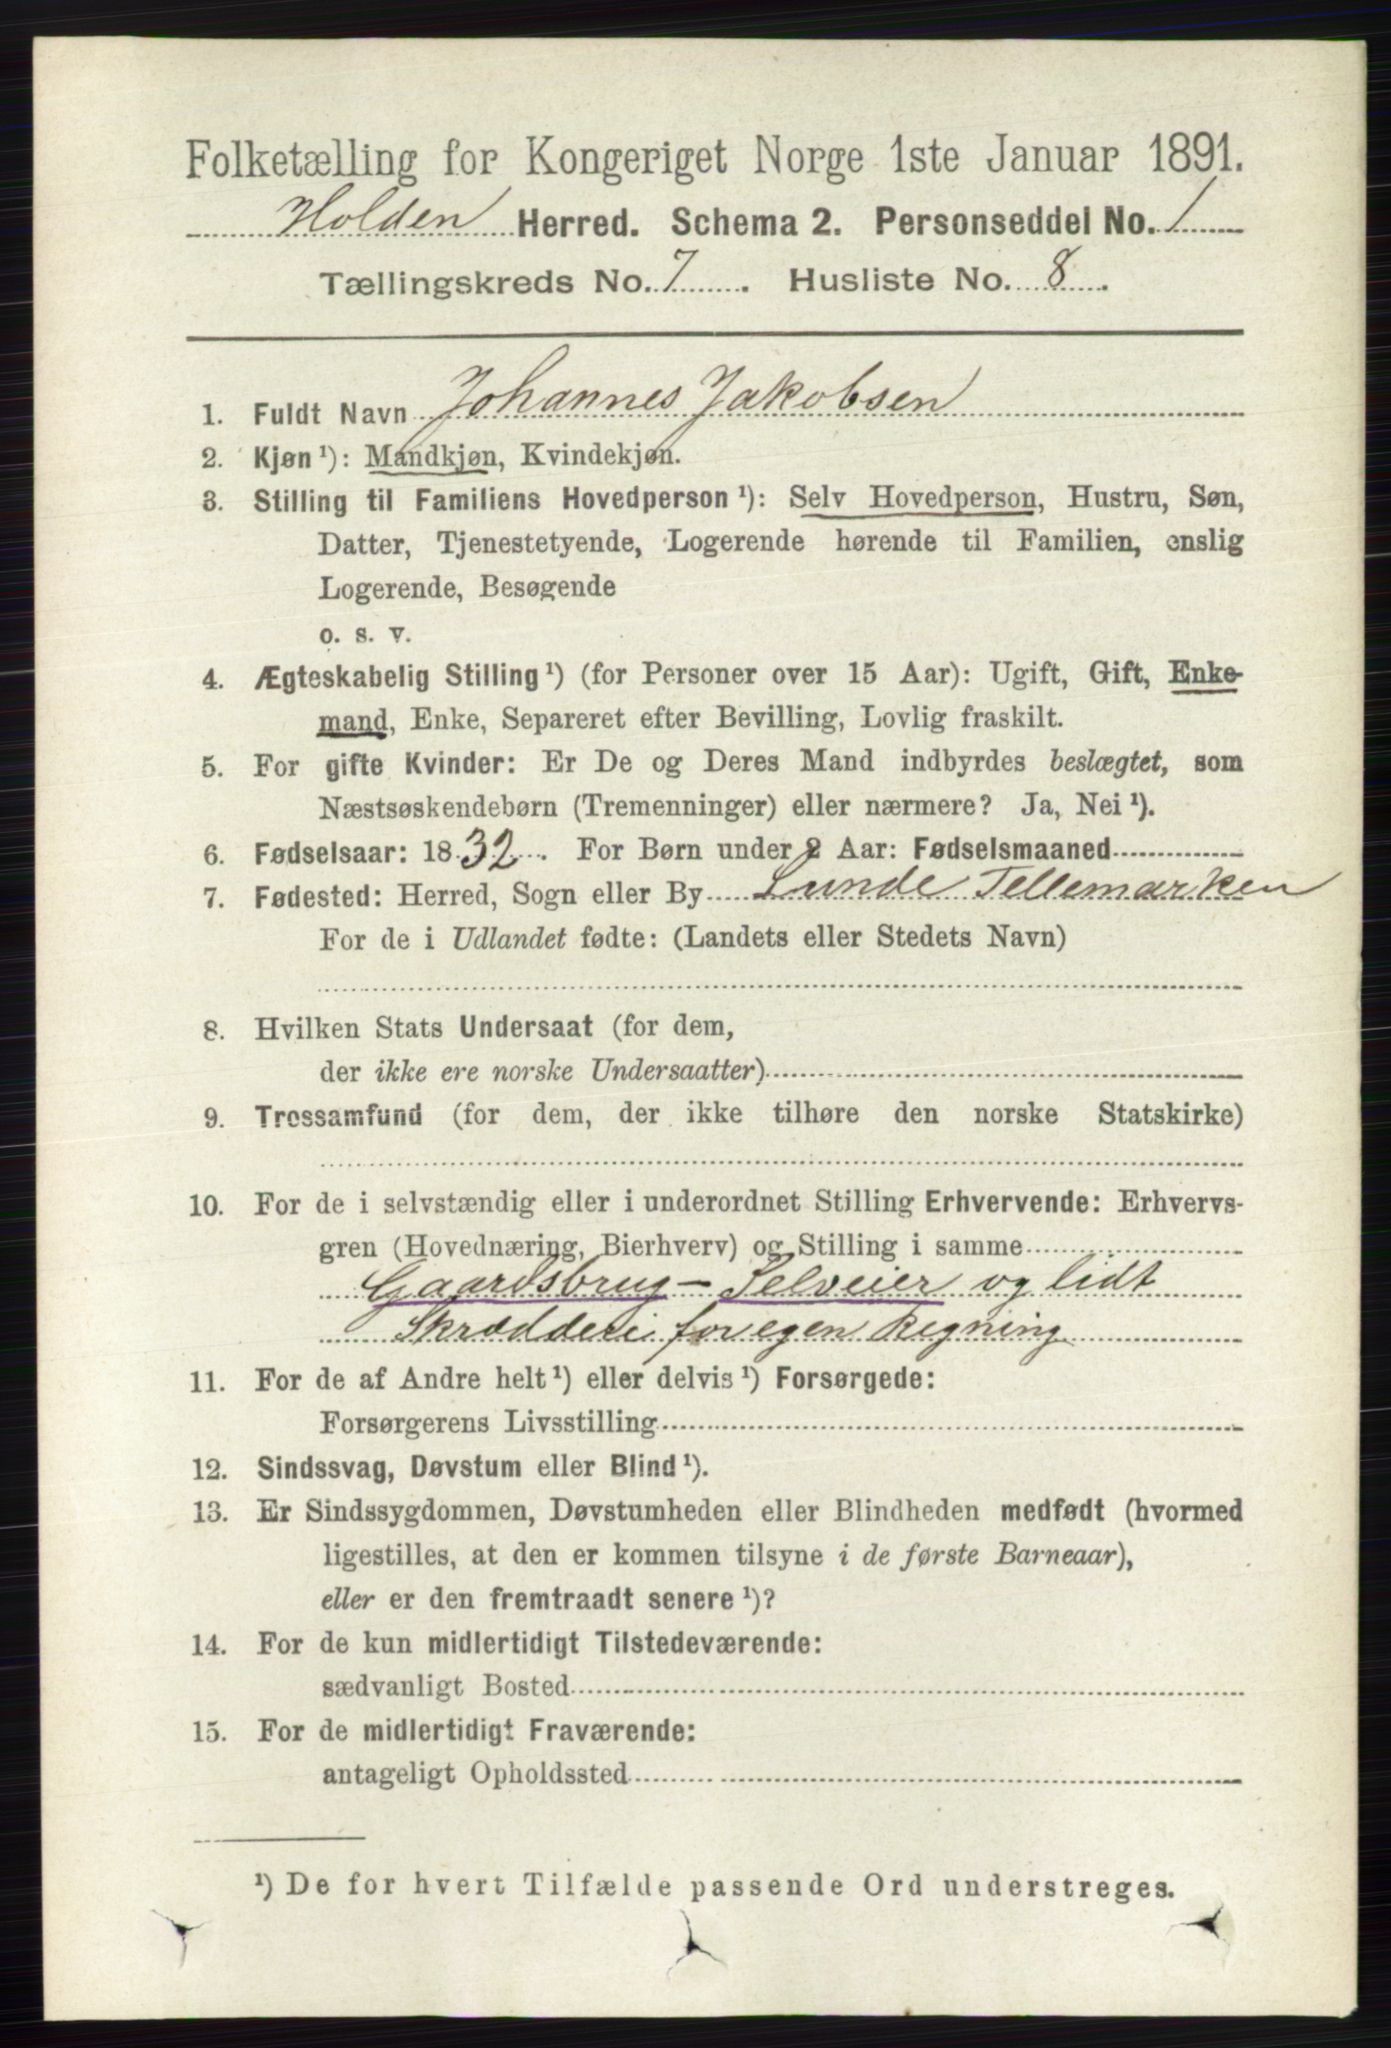 Folketælling for Kongeriget Norge 1ste Januar 1891.
Holden Herred. Schema 2. Personseddel No. 1
Tællingskreds No. 7. Husliste No. 8.
1. Fuldt Navn Johannes Jakobsen
2. Kjøn ¹): Mandkjøn, Kvindekjøn.
3. Stilling til Familiens Hovedperson ¹): Selv Hovedperson, Hustru, Søn,
Datter, Tjenestetyende, Logerende hørende til Familien, enslig
Logerende, Besøgende
o. s. v.
4. Ægteskabelig Stilling ¹) (for Personer over 15 Aar): Ugift, Gift, Enke-
mand, Enke, Separeret efter Bevilling, Lovlig fraskilt.
5. For gifte Kvinder: Er De og Deres Mand indbyrdes beslægtet, som
Næstsøskendebørn (Tremenninger) eller nærmere? Ja, Nei ¹).
6. Fødselsaar: 1832. For Børn under 2 Aar: Fødselsmaaned
7. Fødested: Herred, Sogn eller By Lunde Tellemarken
For de i Udlandet fødte: (Landets eller Stedets Navn)
8. Hvilken Stats Undersaat (for dem,
der ikke ere norske Undersaatter)
9. Trossamfund (for dem, der ikke tilhøre den norske Statskirke)
10. For de i selvstændig eller i underordnet Stilling Erhvervende: Erhvervs-
gren (Hovednæring, Bierhverv) og Stilling i samme
Gaardsbrug - Selveier og lidt
Skrædderi for egen Regning
11. For de af Andre helt ¹) eller delvis ¹) Forsørgede:
Forsørgerens Livsstilling
12. Sindssvag, Døvstum eller Blind ¹).
13. Er Sindssygdommen, Døvstumheden eller Blindheden medfødt (hvormed
ligestilles, at den er kommen tilsyne i de første Barneaar),
eller er den fremtraadt senere ¹)?
14. For de kun midlertidigt Tilstedeværende:
sædvanligt Bosted
15. For de midlertidigt Fraværende:
antageligt Opholdssted
¹) De for hvert Tilfælde passende Ord understreges.